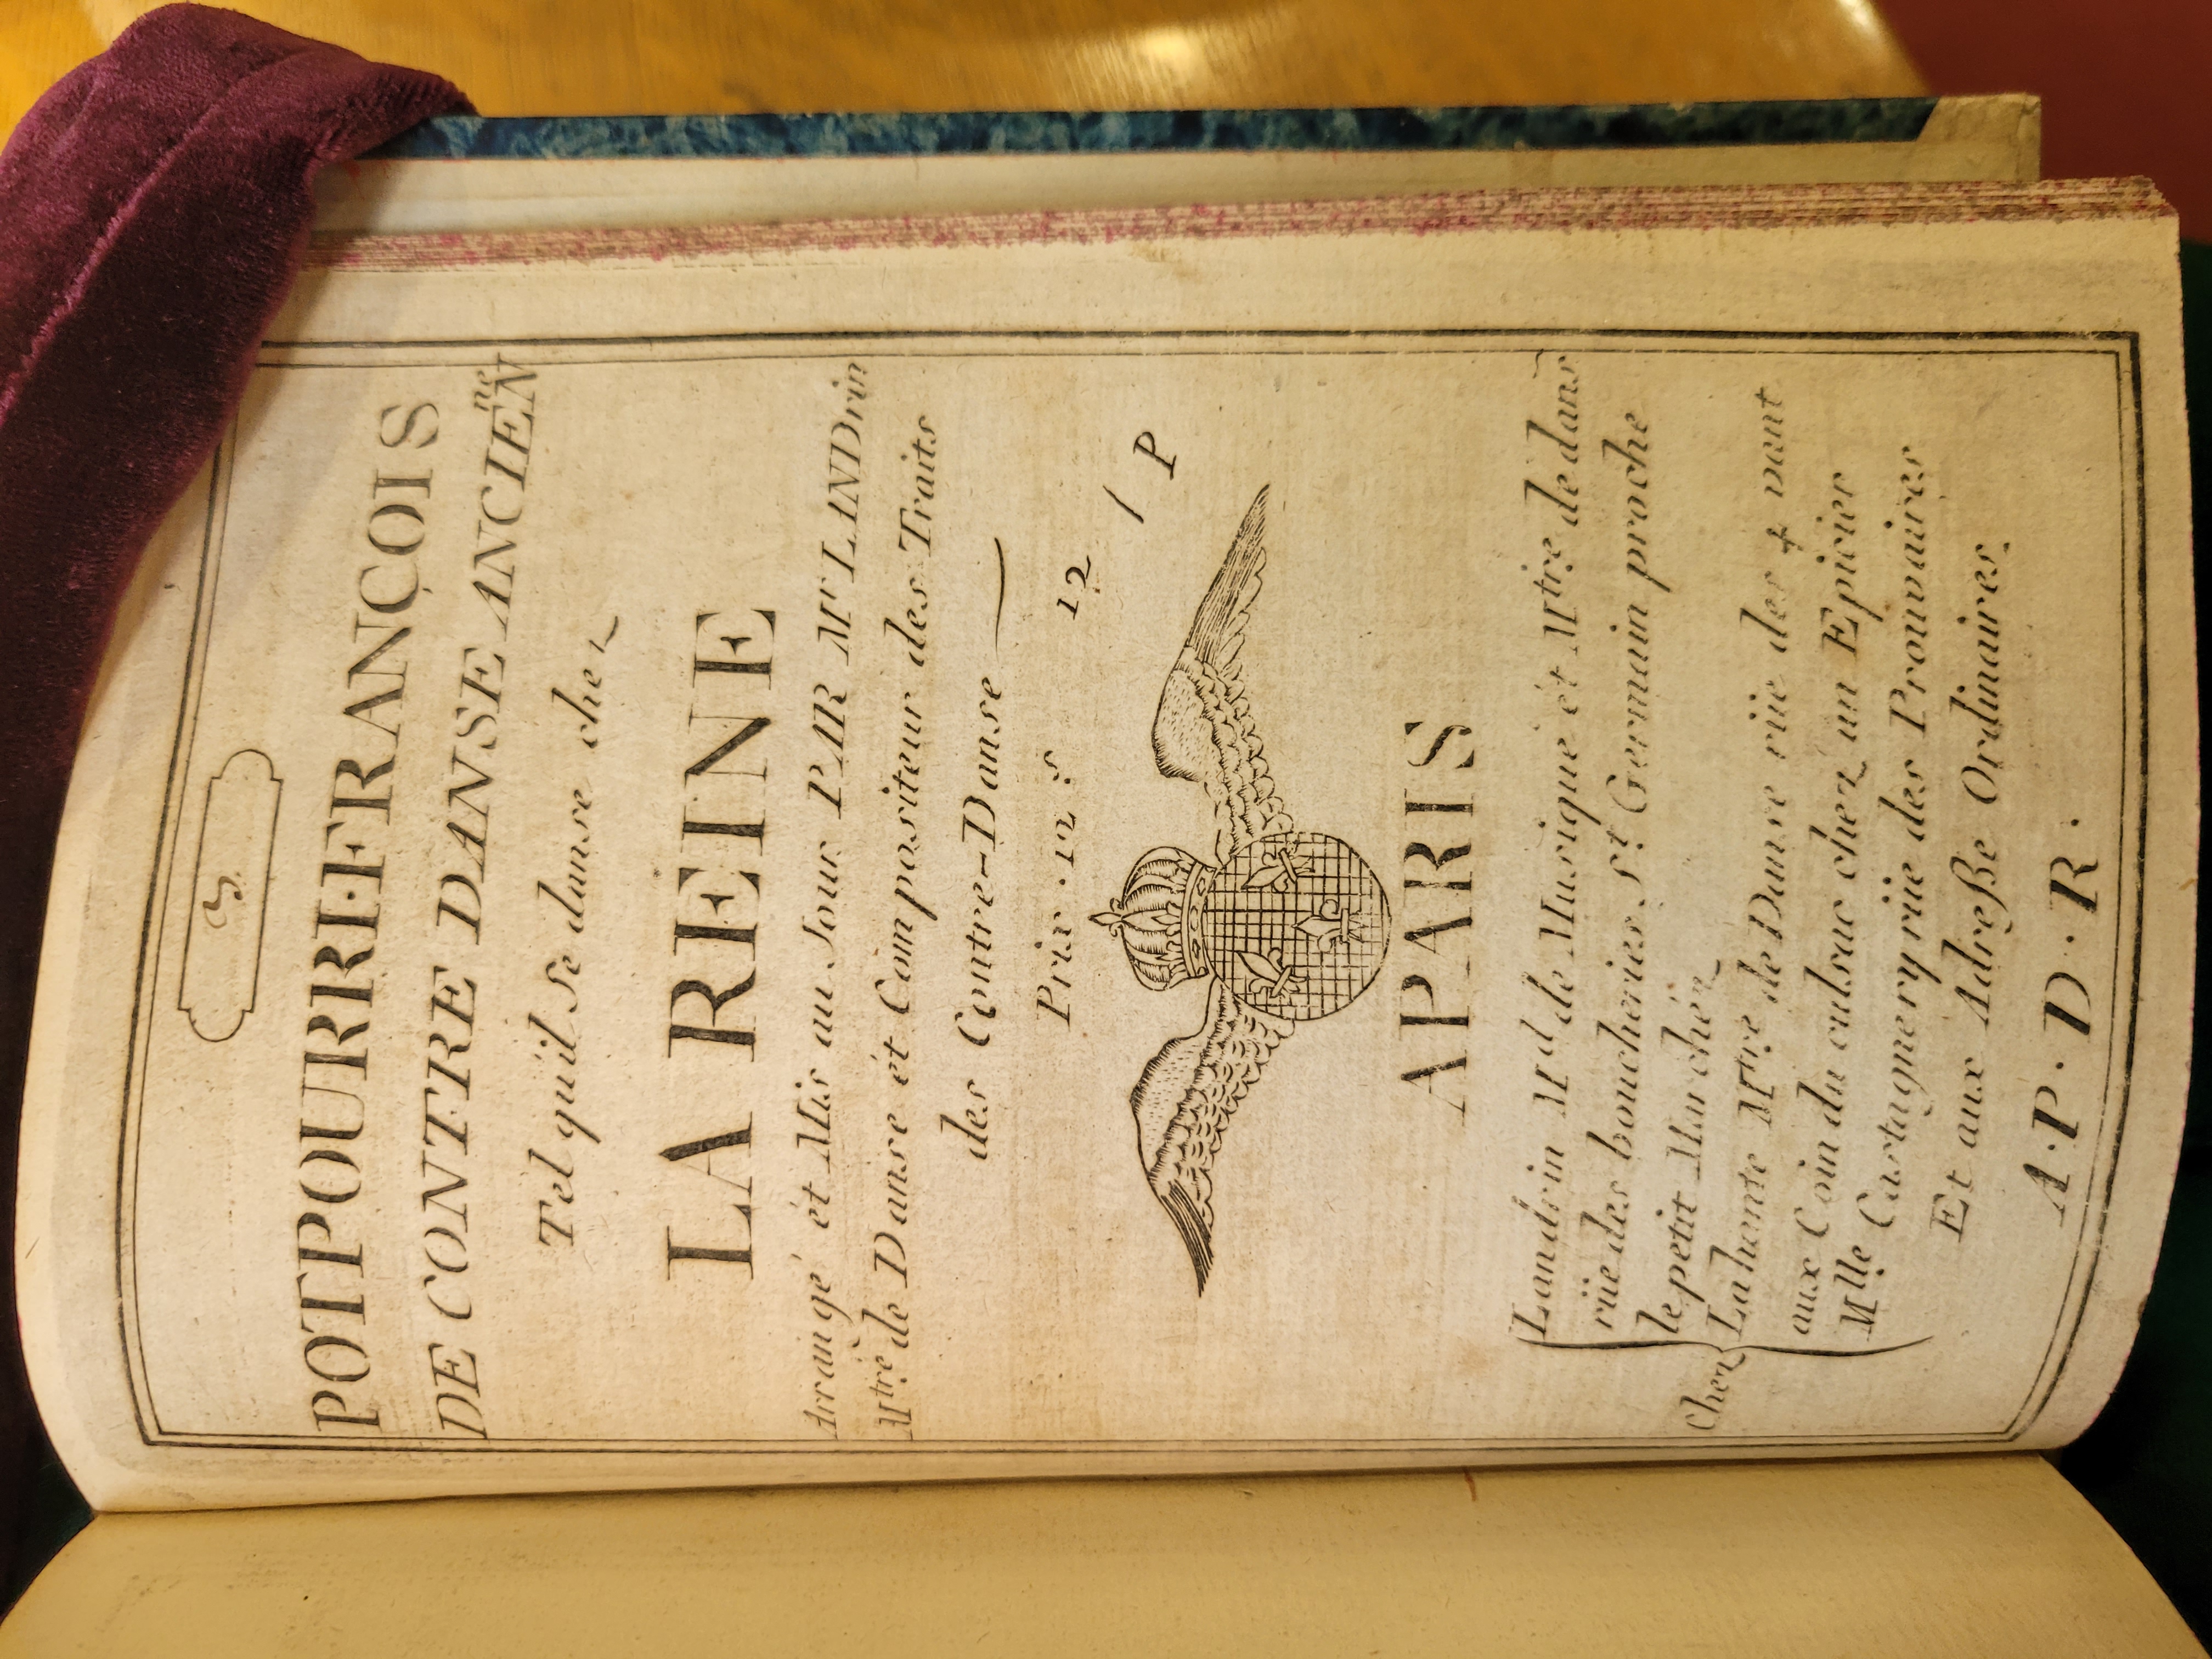 3.
POTPOURRI FRANÇOIS
DE CONTRE DANSE ANCIENne
Tel quil se danse chez
LA REINE
Arrangé et Mis au Jour PAR Mr LANDrin
Mtre de Danse et Compositeur des Traits
des Contre-Danse
Prix . 12 s
12 / P
APARIS
Chez
Landrin Md de Musique et Mtre de dans
rüe des boucheries St Germain proche
le petit Marchez
La hante Mtre de Danse rüe des 4 vant
aux Coin du culsac chez un Epicier
Mlle Castagnery rüe des Prouvaires
Et aux Adreße Ordinaires.
A. P. D. R.